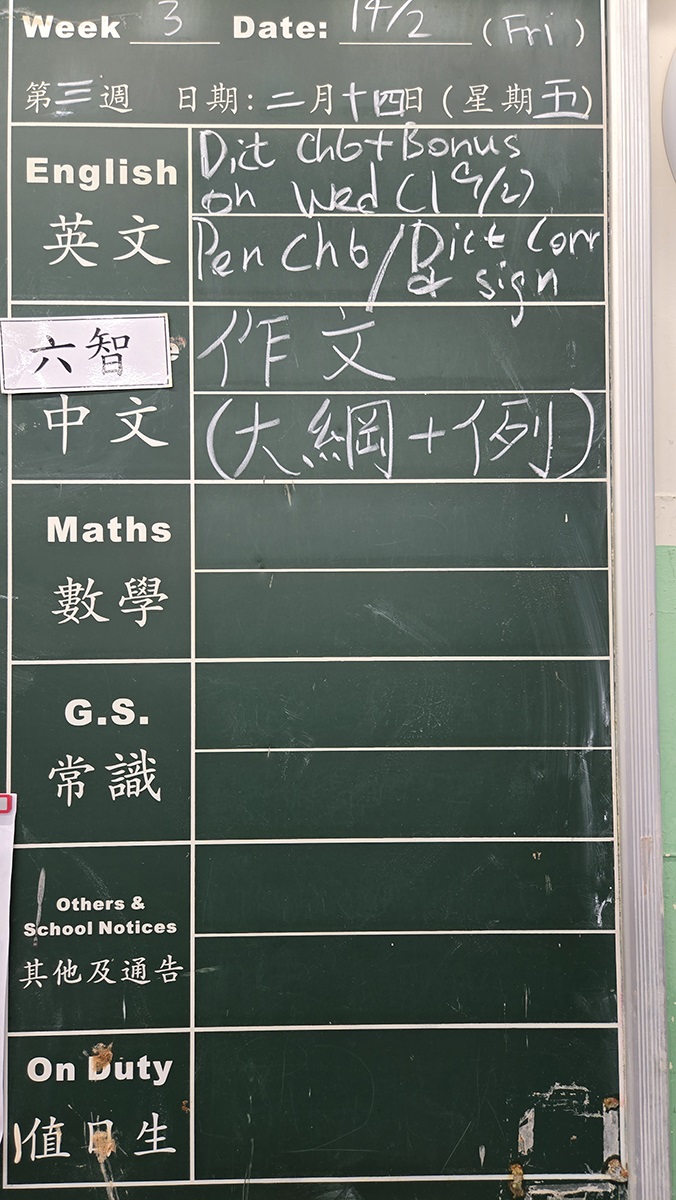 Week 3 Date: 14/2 (Fri)
第三週 日期:二月十四日(星期五)
English
英文
Dict Ch6+Bonus
on Wed (19/2)
Pen Ch6/Dict Corr
& sign
六智
中文
作文
(大綱+例)
Maths
數學
G.S.
常識
Others &
School Notices
其他及通告
On Duty
值日生